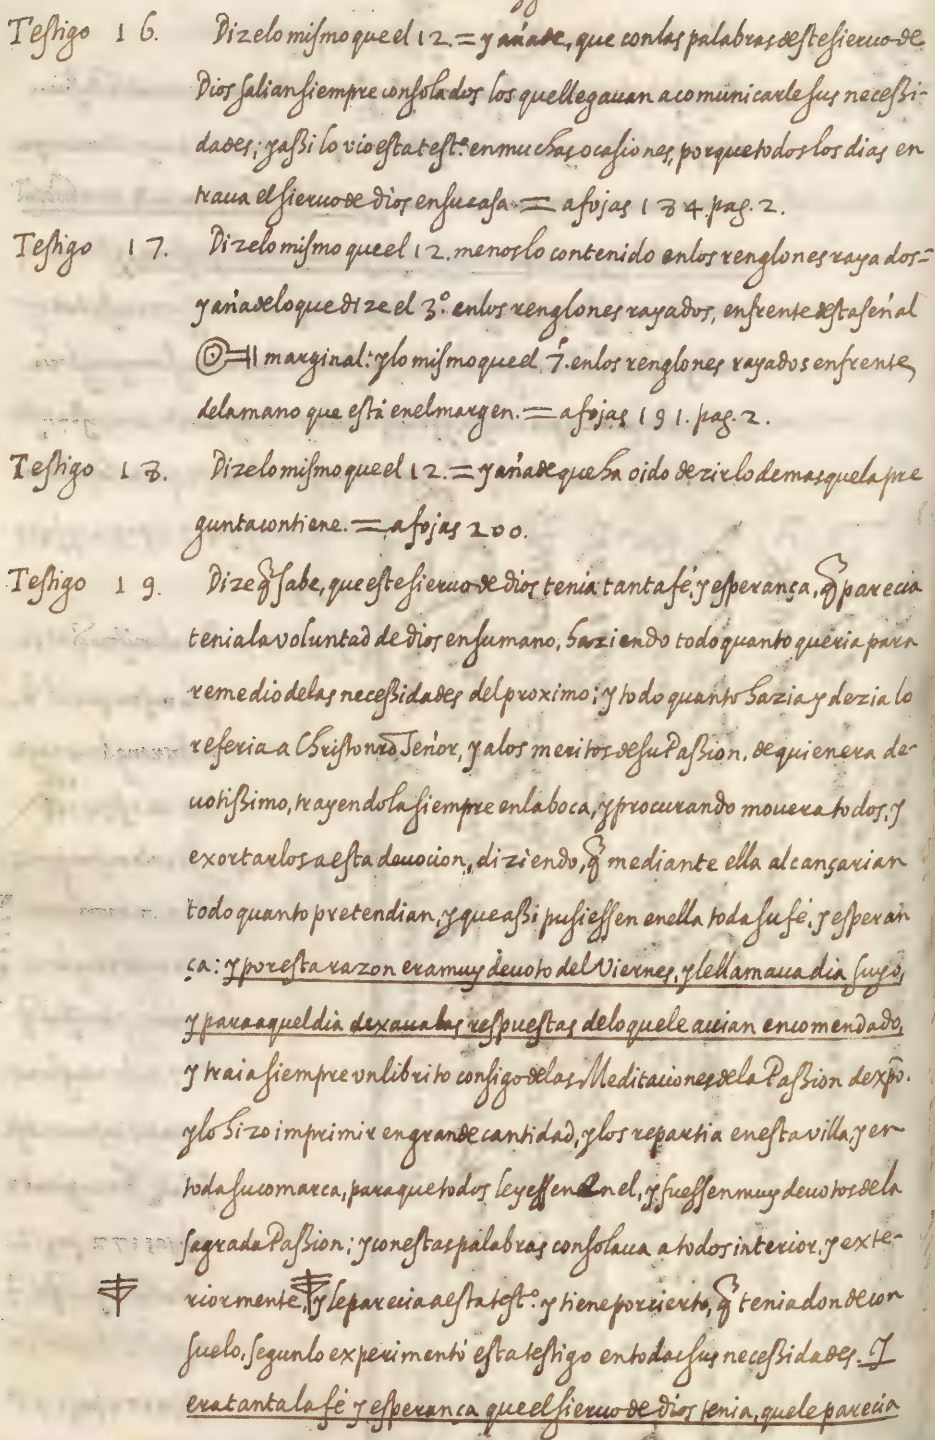 Testigo 16. Dize lo mismo que el 12. = y añade, que con las palabras deste sieruo de
Dios salian siempre consolados los que llegauan a comunicarle sus necessi-
dades; y assi lo vio esta test.º en muchas ocasiones, porque todos los dias en
traua el sieruo de Dios en su casa. = a fojas 184. pag. 2.
Testigo 17. Dize lo mismo que el 12. menos lo contenido en los renglones rayados =
y añade lo que dize el 3.º en los renglones rayados, enfrente desta señal
marginal: y lo mismo que el 7. en los renglones rayados enfrente
de la mano que está en el margen. = a fojas 191. pag. 2.
Testigo 18. Dize lo mismo que el 12. = y añade que ha oido dezir lo demas que la pre
gunta contiene. = a fojas 200.
Testigo 19. Dize q̃ sabe, que este sieruo de Dios tenia tanta fé, y esperança, q̃ parecia
tenia la voluntad de Dios en su mano, haziendo todo quanto queria para
remedio de las necessidades del proximo; y todo quanto hazia y dezia lo
referia a Christo nr̃o Señor, y a los meritos de su Passion, de quien era de-
uotissimo, trayendola siempre en la boca, y procurando mouer a todos, y
exortarlos a esta deuocion, diziendo, q̃ mediante ella alcançarian
todo quanto pretendian, y que assi pusiessen en ella toda su fé, y esperan
ça: y por esta razon era muy deuoto del Viernes, y le llamaua dia suyo,
y para aquel dia dexaua las respuestas de lo que le auian encomendado,
y traia siempre vn librito consigo de las Meditaciones de la Passion de xp̃o.
y lo hizo imprimir en grande cantidad, y los repartia en esta villa, y en
toda su comarca, para que todos leyessen en el, y fuessen muy deuotos de la
sagrada Passion; y con estas palabras consolaua a todos interior, y exte-
riormente, y le parecia a esta test.º y tiene por cierto, q̃ tenia don de con
suelo, segun lo experimentó esta testigo en todas sus necessidades. Y
era tanta la fé y esperança que el sieruo de Dios tenia, que le parecia